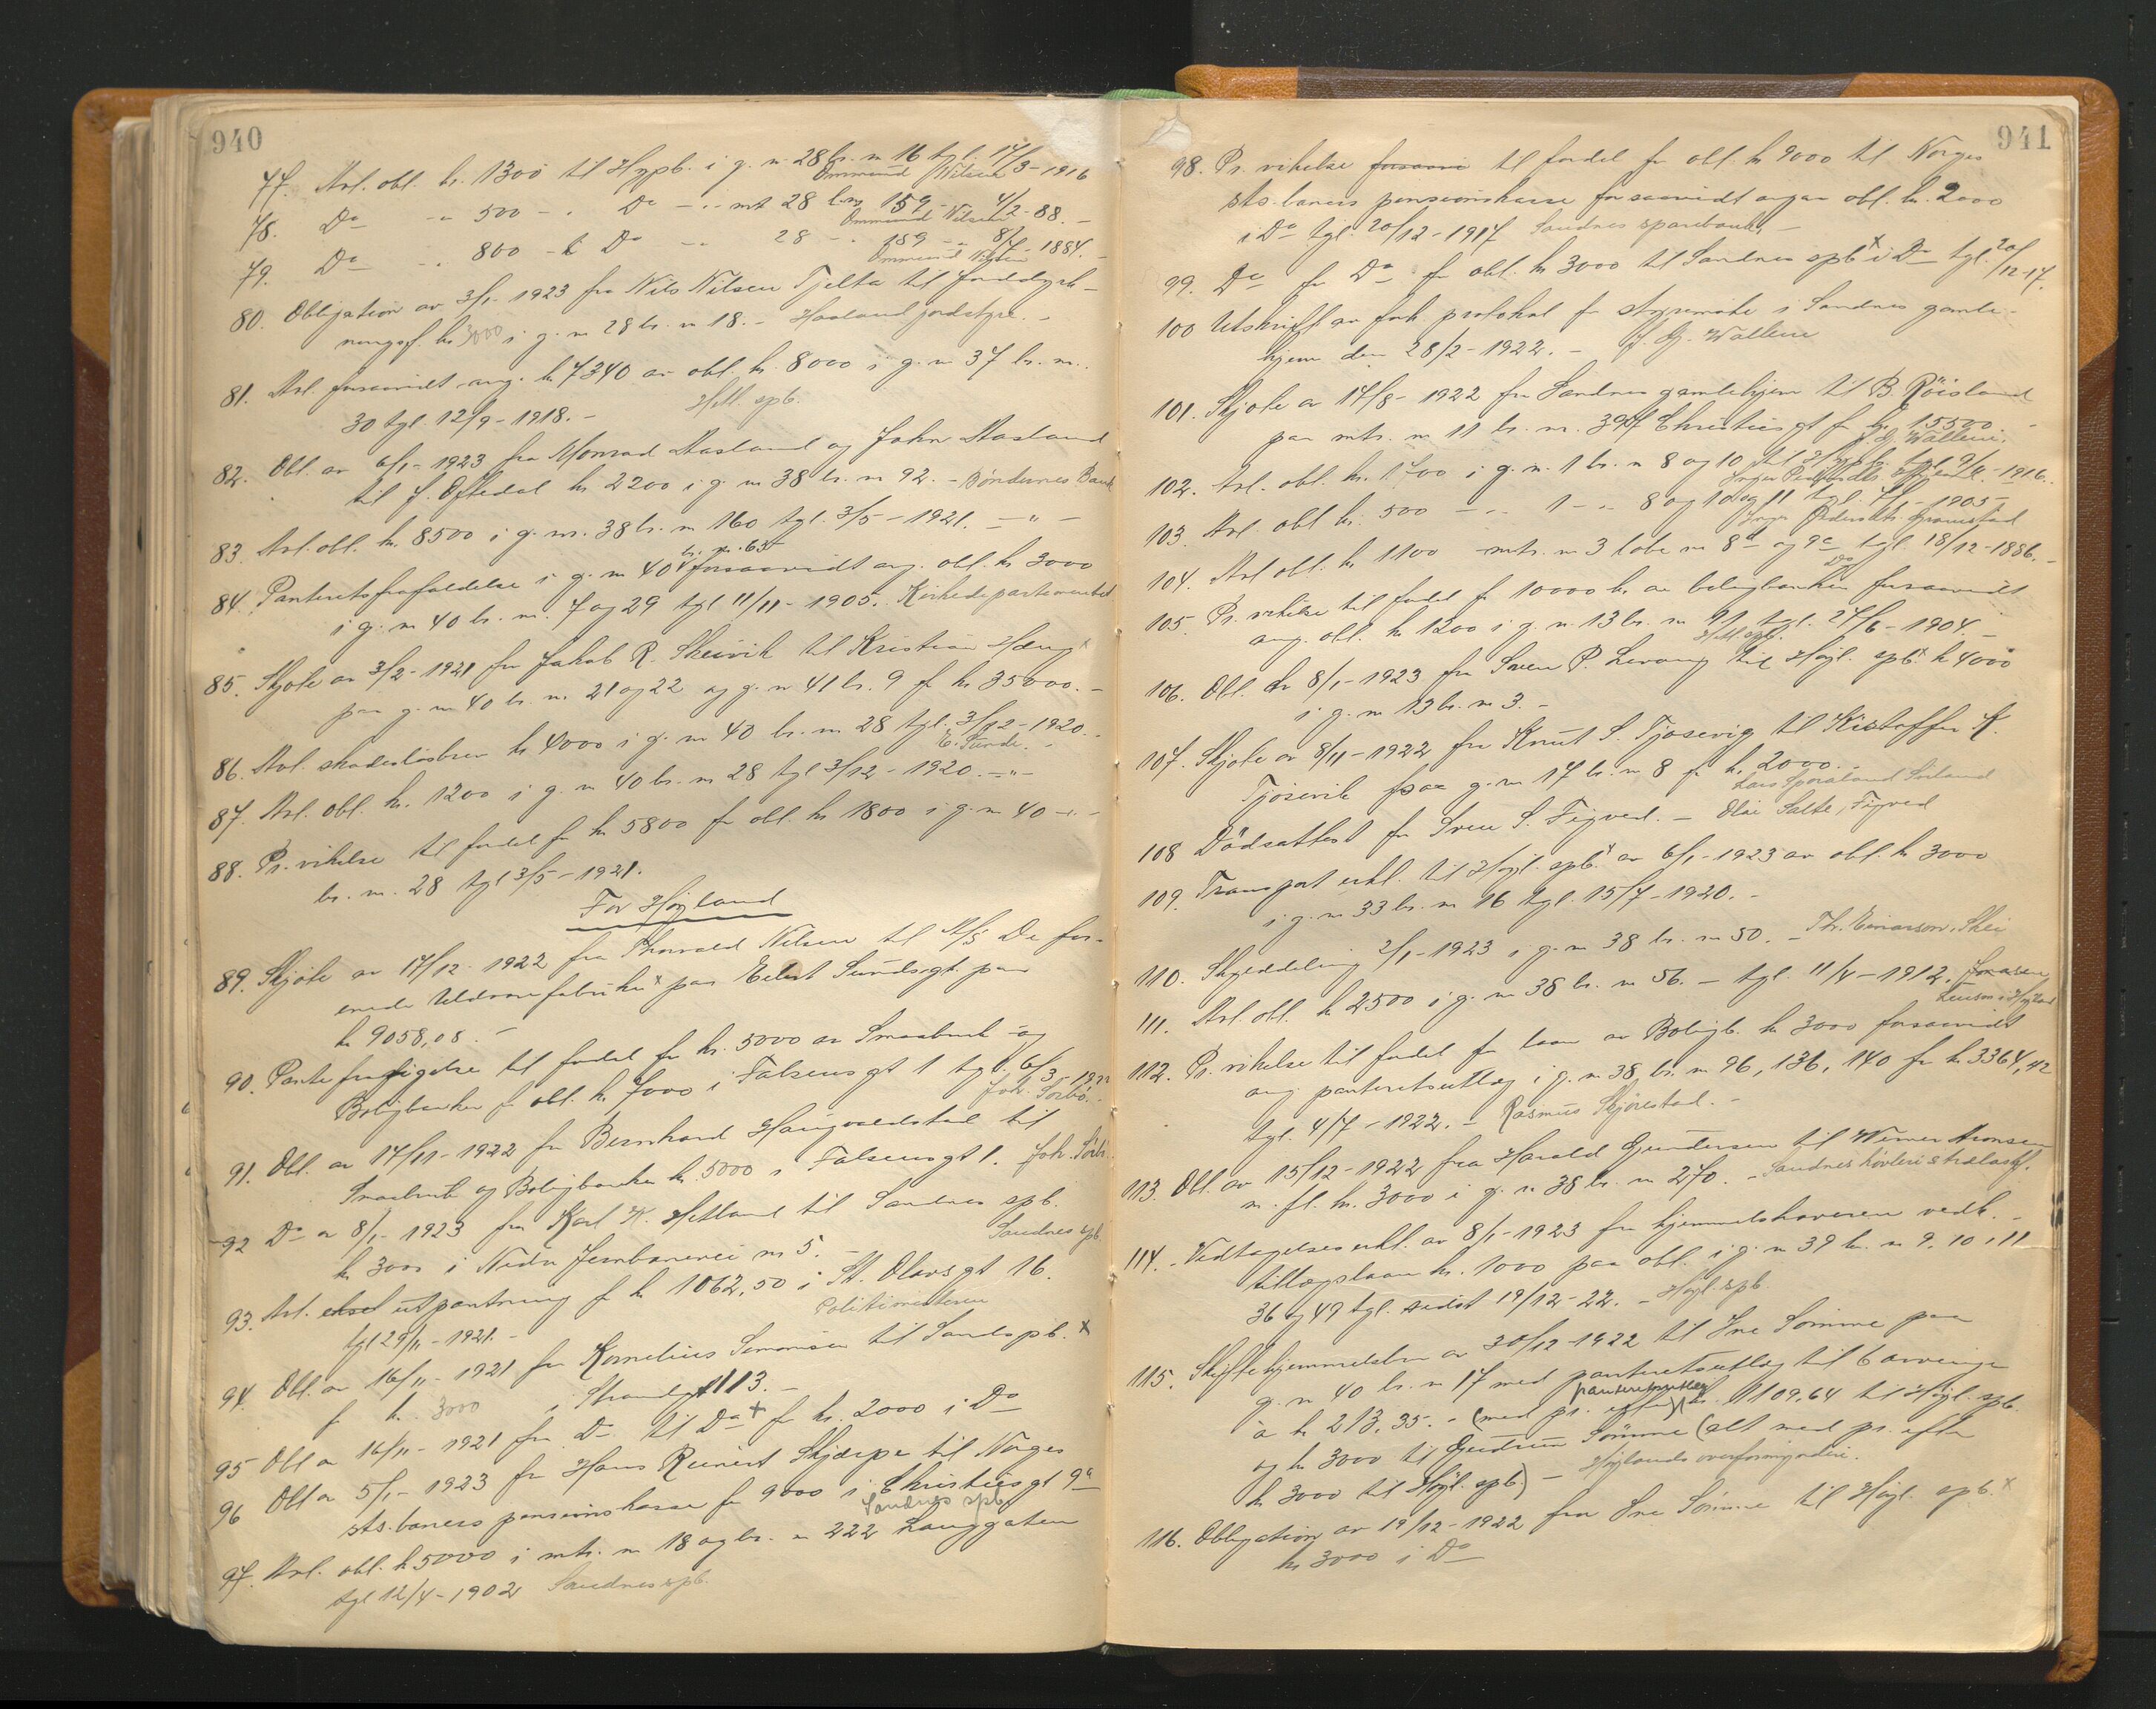 940
77. Avl. obl. kr. 1300 til Hypb. i g. n. 28 br. n 16 tgl. 17/3-1916
Ommund Nilsen
78. Do - " 500 - " Do - " - mt 28 l.nr 159 - 4/2-88. -
Ommund Nilsen
79. Do - " 800 - " Do - " 28 - " 159 - " 8/7-1884. -
Ommund Nilsen
80. Obligation av 3/1-1923 fra Nils Nilsen Tjelta til jorddyrk-
ningsf. kr 3000 i g. n 28 br. n 18. - Haaland jordstyre. -
81. Avl. forsaavidt ang. kr 7340 av obl. kr. 8000 i g. n 37 br. n.
30 tgl 12/9-1918. - Hetl. spb.
82. Obl. av 6/1-1923 fra Monrad Aasland og John Aasland
til J. Oftedal kr 2200 i g. n 38 br. n 92. - Böndernes Bank
83. Avl. obl. kr. 8500 i g. nr. 38 br. n 160 tgl. 3/5-1921. - " -
84. Panteretsfrafaldelse i g. n 40 br. nr. 65 forsaavidt ang. obl. kr 3000
i g. n 40 br. n. 7 og 29 tgl 11/11-1905. Kirkedepartementet
85. Skjøte av 3/2-1921 fra Jakob R. Skeivik til Kristian Haug x
paa g. n 40 br. n. 21 og 22 og g. n 41 br. 9 for kr 35000. -
86. Avl. skadeslösbrev kr 4000 i g. n 40 br. n 28 tgl. 3/12-1920. -
E. Sunde. -
87. Avl. obl. kr. 1200 i g. n 40 br. n 28 tgl 3/12-1920. - " -
88. Pr. vikelse til fordel for kr 5800 for obl. kr 1800 i g. n 40 - " -
br. n. 28 tgl 3/5-1921.
For Høyland
89. Skjøte av 17/12-1922 fra Thorvald Nilsen til A/S De for-
enede Uldvarefabriker x paa Eilert Sundsgt. paa
kr 9058,08. -
90. Pantefragigelse til fordel for kr. 5000 av Smaabruk - og
Boligbanken for obl. kr. 7000 i Falsensgt 1 tgl. 6/3-1922
Joh. Sörbö.
91. Obl. av 14/11-1922 fra Bernhard Haugvaldstad til
Smaabruk og Boligbanken kr. 5000 i Falsensgt 1. Joh. Sörb.
92 Do av 8/1-1923 fra Karl K. Hetland til Sandnes spb.
kr 3000 i Nedre Jernbanevei nr 5. - Sandnes spb.
93. Avl. utpantning for kr 1062,50 i St. Olavsgt 16.
tgl 29/11-1921. - Politimesteren
94. Obl. av 16/11-1921 fra Kornelius Simonsen til Sands spb. x
for kr. 3000 i Strandgt 113. -
95 Obl av 16/11-1921 fra Do til Do x for kr. 2000 i Do
96 Obl av 5/1-1923 fra Hans Reinert Skjærpe til Norges
sts.baners pensionskasse for 9000 i Christiesgt 9a
Sandnes spb
97. Avl. obl. kr 5000 i mtr. n 18 og br. n 222 Langgaten
tgl 12/4-1902 Sandnes spb.
941
98. Pr. vikelse til fordel for obl. kr 9000 til Norges
sts. baners pensionskasse forsaavidt angaar obl. kr. 2000
i Do tgl. 20/12-1917 Sandnes sparebank. -
99. Do for Do for obl. kr 3000 til Sandnes spb x i Do tgl. 20/12-17.
100 Utskrift av forh. protokol for styremøte i Sandnes gamle-
hjem den 28/2-1922. - J. Wallem
101. Skjøte av 17/8-1922 fra Sandnes gamlehjem til B. Röisland
paa mtr. n 11 br. nr. 397 Christiesgt for kr 15500. -
J. Wallem.
102. Avl. obl. kr. 1700 i g. n. 1 br. n 8 og 10 til Hypb. tgl. 9/4-1916.
103. Avl. obl kr. 500 - " 1 - " 8 og 10 og 11 tgl. 7/1-1905
104. Avl obl. kr 1100 mtr. n 3 løbe nr 8a og 9a tgl. 18/12-1886. -
Do
105. Pr. vikelse til fordel for 10000 kr. av boligbanken forsaavidt
ang. obl. kr 1200 i g. n 13 br. n 91 tgl. 27/6-1904. -
Hetl. spb.
106. Obl. av 8/1-1923 fra Sven P. Levang til Høyl. spb. x kr 4000
i g. n 13 br. n 3. -
107. Skjøte av 8/11-1922 fra Knut S. Tjøsevig til Kristoffer K.
Tjøsevik paa g. n 17 br. n 8 for kr. 2000. -
Lars Sporaland Sörland
108 Dödsattest for Sven S. Figved. - Olai Salte, Figved
109. Transport erkl. til Høyl. spb. x av 6/1-1923 av obl. kr 3000
i g. n 33 br. n 16 tgl. 15/7-1920. -
110. Skylddeling 2/1-1923 i g. n 38 br. n 50. - Th. Einarson, Skei
111. Avl. obl. kr 2500 i g. n 38 br. n 56. - tgl. 11/4-1912.
Lensm i Høyland
112. Pr. vikelse til fordel for laan av Boligb. kr 3000 forsaavidt
ang. panteretsutlæg i g. n 38 br. n 96, 136, 140 for kr. 3364,42
tgl. 4/7-1922. - Rasmus Skjørestad. -
113. Obl. av 15/12-1922 fra Harald Gundersen til Werner Aronsen
m. fl. kr. 3000 i g. n 38 br. n 270. - Sandnes høvleri & trælastf.
114. Vedtagelseserkl. av 8/1-1923 fra hjemmelshaveren vedk. -
tillægslaan kr. 1000 paa obl. i g. n 39 br. n 9. 10. 11
36 og 49 tgl. sidst 19/12-22. - Høyl. spb
115. Skiftehjemmelsbr. av 30/12-1922 til Ine Sömme paa
g. n 40 br. n 17 med panteretsutlæg til 6 arvinger
à kr 213,35. - (med pr. efter) panteretsutlæg kr. 1109,64 til Høyl. spb.
og kr 3000 til Gudrun Sömme (alt med pr. efter
kr 3000 til Høyl. spb.) - Høylands overformynderi.
116. Obligation av 19/12-1922 fra Ine Sömme til Høyl. spb. x
kr 3000 i Do